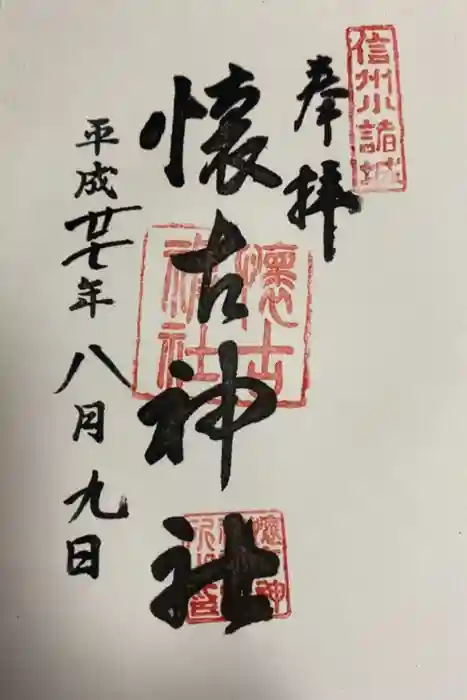 信州小諸城
奉拝
懐古神社
懐古神社
平成廿七年八月九日